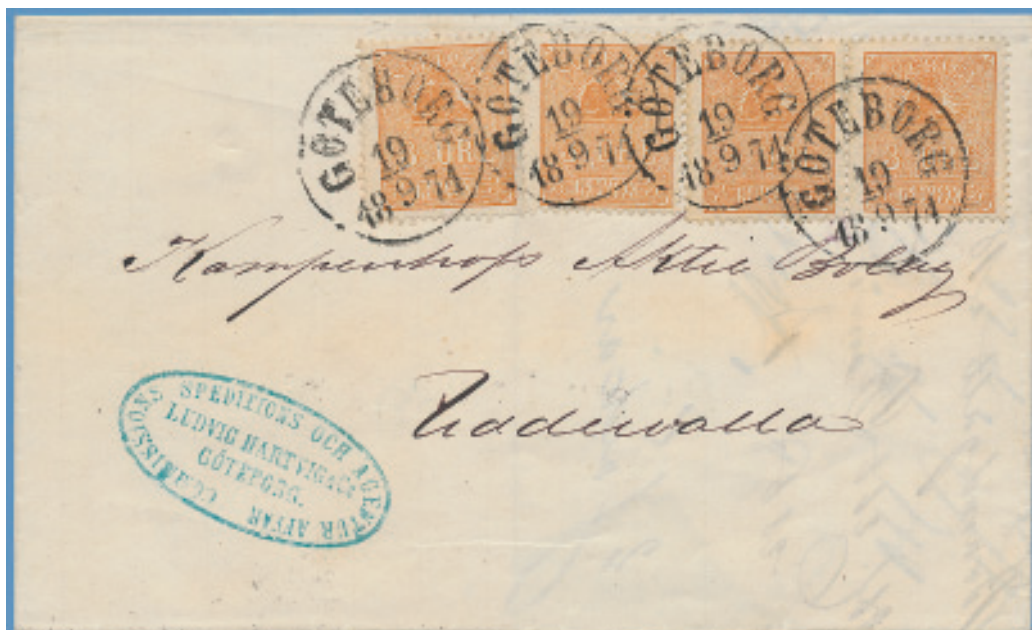 GÖTEBORG
19
18 9 71
GÖTEBORG
19
18 9 71
GÖTEBORG
19
18 9 71
GÖTEBORG
19
18 9 71
ÖRE
Kampenhofs Aktie Bolag
Uddewalla
COMMISSIONS SPEDITIONS OCH AGENTUR AFFÄR
LUDVIG HARTVIG & Co
GÖTEBORG.